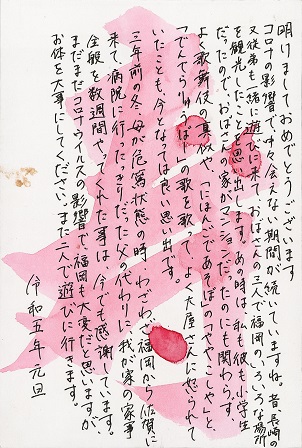 明けましておめでとうございます
コロナの影響で、中々会えない期間が続いていますね。昔、長崎の
又従弟も一緒に遊びに来て、おばさんの三人で福岡のいろいろな場所
を観光したことを思い出します。あの時は、私も彼も小学生
だったので、おばさんの家がマンションだったのにも関わらず、
よく歌舞伎の真似や、「にほんごであそぼ」の「ややこしや」と、
「でんでらりゅうば」の歌を歌って、よく大屋さんに怒られて
いたことも、今となっては良い思い出です。
三年前の冬、母が危篤状態の時、わざわざ福岡から佐賀に
来て、病院に行ったっきりだった父の代わりに、我が家の家事
全般を数週間やってくれた事は、今でも感謝しています。
まだまだコロナウイルスの影響で、福岡も大変だと思いますが、
お体を大事にしてください。また二人で遊びに行きます。
令和五年元旦